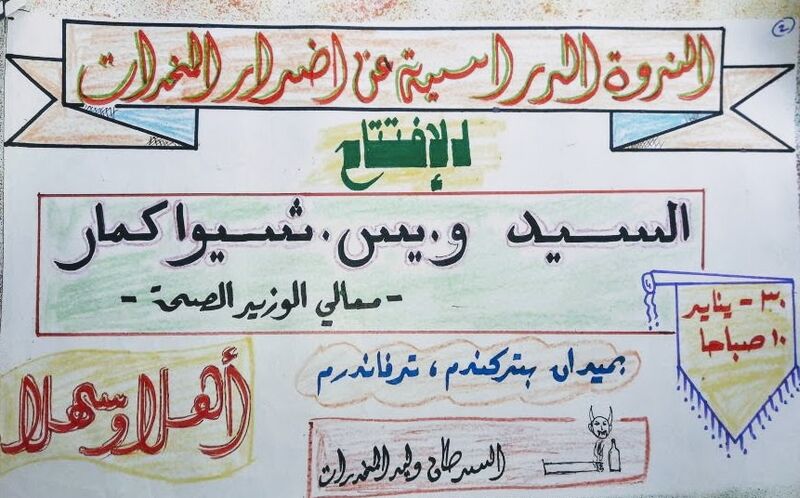 ٢
الندوة الدراسية عن اضرار المخدرات
للإفتتاح
السيد و.يس. شيواكمار
- معالي الوزير الصحة -
٣٠ - يناير
١٠ صباحا
بميدان بتركندم، ترفاندرم
أهلا وسهلا
السرطان وليد المخدرات